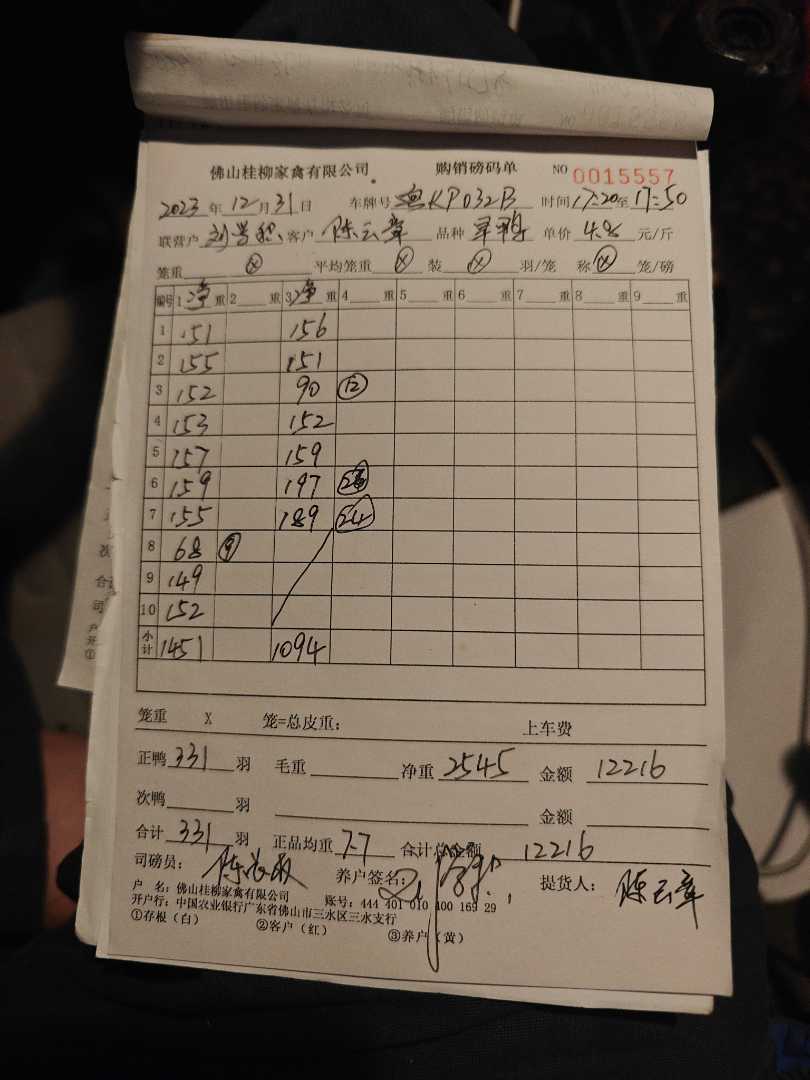 佛山桂柳家禽有限公司 购销磅码单 NO 0015557
2023年12月31日 车牌号 粤KP032B 时间17:20至17:50
联营户 刘 客户 陈云章 品种 单价 4.8 元/斤
笼重 ⊗ 平均笼重 ⊗ 装 ⊗ 羽/笼 称 ⊗ 笼/磅
编号 1净重 2重 3净重 4重 5重 6重 7重 8重 9重
1 151 156
2 155 151
3 152 90 ⑫
4 153 152
5 157 159
6 159 197
7 155 189 ㉔
8 68 ⑨
9 149
10 152
小计 1451 1094
笼重 X 笼=总皮重: 上车费
正鸭 331 羽 毛重 净重 2545 金额 12216
次鸭 羽 金额
合计 331 羽 正品均重 7.7 合计总金额 12216
司磅员: 陈 养户签名: 提货人: 陈云章
户 名: 佛山桂柳家禽有限公司
开户行: 中国农业银行广东省佛山市三水区三水支行 账号: 444 401 010 400 169 29
①存根(白) ②客户(红) ③养户(黄)